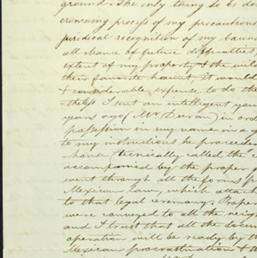 ground. The only thing to be do
crowning process of my precautions
juridical recognition of my boun
all chance of future difficulties
extent of my property & the
their favorite haunt, it would
& considerable expense to do the
theless I sent an intelligent
years ago (Mr. ) in ord
possession in my name in a
to my instructions he proceeded
have (technically called the
accompanied by the proper
went through all the forms
Mexican law, which attach
to that legal ceremony. Proper
were conveyed to all the neigh
and I trust that all the
operation will be ready by th
Mexican procrastination & t